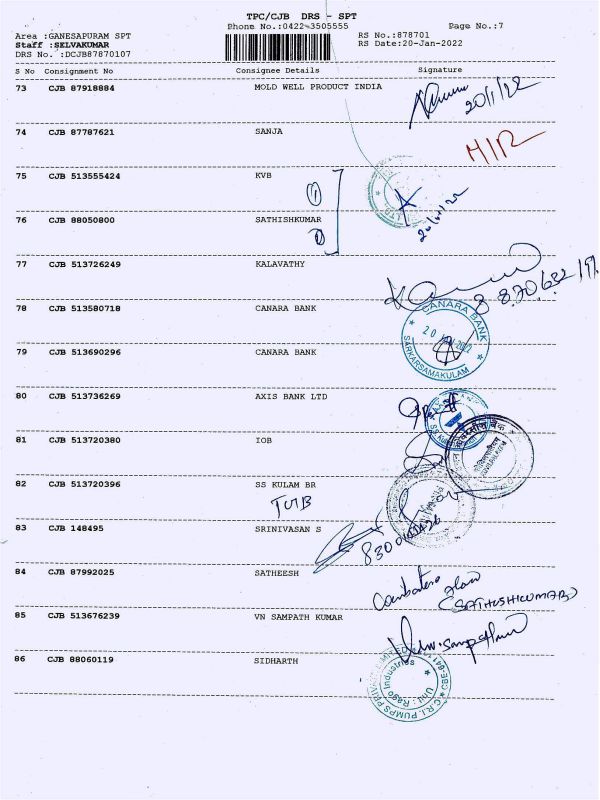 TPC/CJB DRS - SPT
Phone No.:0422-3505555 Page No.:7
Area :GANESAPURAM SPT RS No.:878701
Staff :SELVAKUMAR RS Date:20-Jan-2022
DRS No. :DCJB87870107
S No Consignment No Consignee Details Signature
73 CJB 87918884 MOLD WELL PRODUCT INDIA
20/1/22
74 CJB 87787621 SANJA
75 CJB 513555424 KVB
76 CJB 88050800 SATHISHKUMAR
77 CJB 513726249 KALAVATHY
78 CJB 513580718 CANARA BANK
CANARA BANK
79 CJB 513690296 CANARA BANK
SARKARSAMAKULAM
80 CJB 513736269 AXIS BANK LTD
81 CJB 513720380 IOB
82 CJB 513720396 SS KULAM BR
83 CJB 148495 SRINIVASAN S
84 CJB 87992025 SATHEESH
(SATHISHKUMAR)
85 CJB 513676239 VN SAMPATH KUMAR
86 CJB 88060119 SIDHARTH
C.R.I. PUMPS
Unit : Rago Industries